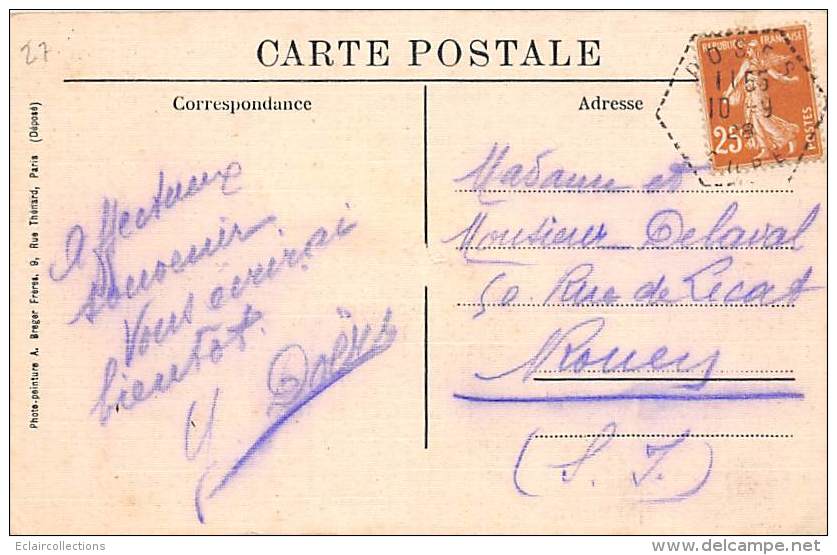 27
CARTE POSTALE
Correspondance
Adresse
REPUBLIQUE FRANÇAISE
25
POSTES
11 55
10 - 9
28
Photo-peinture A. Breger Frères. 9, Rue Thénard, Paris (Déposé)
Affectueux
souvenir
Vous écrirai
bientôt.
Madame et
Monsieur Delaval
50 Rue de Lecat
Rouen
(S. I.)
Eclaircollections
delcampe.net